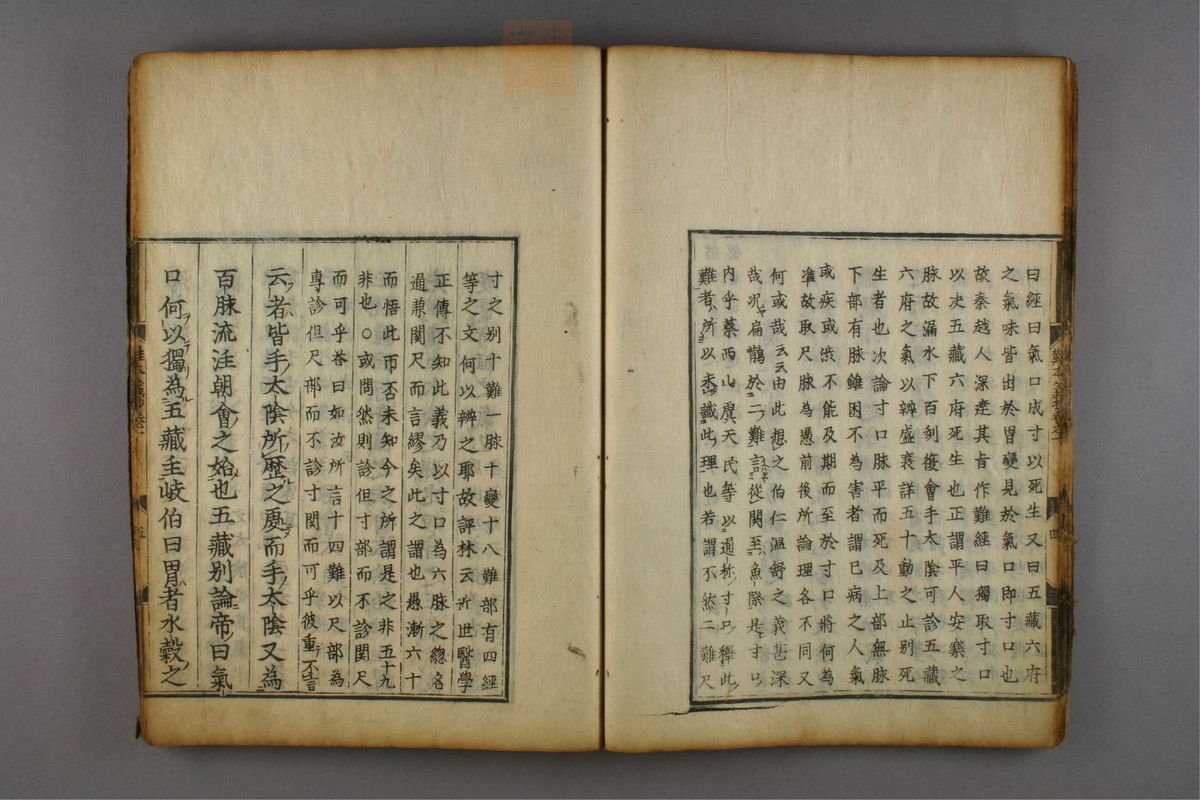 曰經曰氣口成寸以死生又曰五藏六府
之氣味皆出於胃變見於氣口即寸口也
故秦越人深達其肯作難經曰獨取寸口
以决五藏六府死生也正謂平人安樂之
脉故漏水下百刻復會手太陰可診五藏
六府之氣以辨盛衰詳五十動之止别死
生者也次論寸口脉平而死及上部無脉
下部有脉雖困不為害者謂已病之人氣
或疾或渋不能及期而至於寸口將何為
準故取尺脉為憑前後所論理各不同又
何或哉云云由此想之伯仁温舒之義甚深
哉况扁鵲於二難言從関至魚際是寸口
内乎蔡西山虞天民等以通称寸口釋此
難者所以未識此理也若謂不然二難尺
難本義 卷之一
四
寸之别十難一脉十變十八難部有四經
等之文何以辨之耶故評林云近世醫學
正傳不知此義乃以寸口為六脉之緫名
通兼関尺而言繆矣此之謂也愚漸六十
而悟此而否未知今之所謂是之非五十九
非也○或問然則診但寸部而不診関尺
而可乎答曰如汝所言十四難以尺部為
專診但尺部而不診寸関而可乎彼重不言
云者皆手太陰所歴之處而手太陰又為
百脉流注朝會之始也五藏别論帝曰氣
口何以獨為五藏主岐伯曰胃者水穀之
五